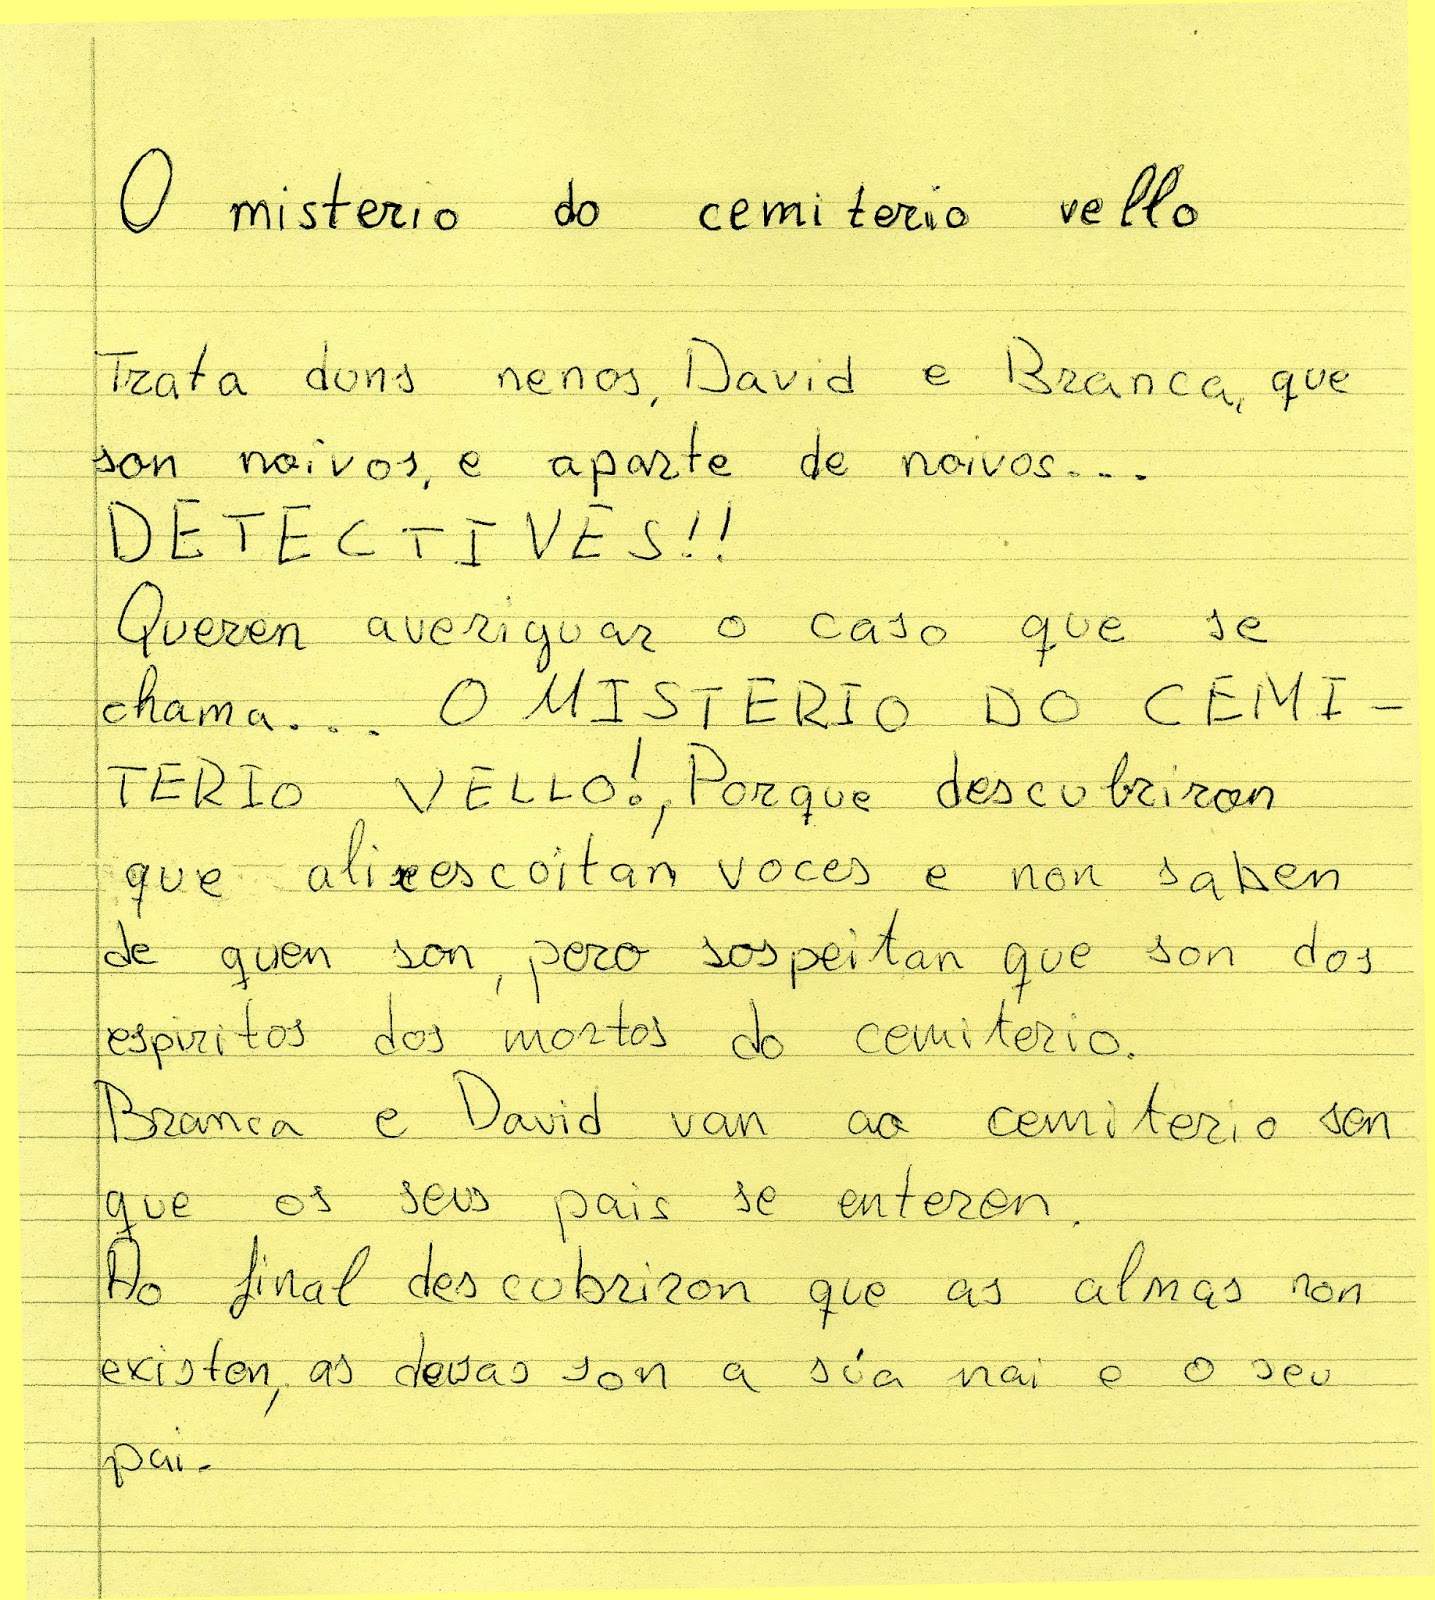 O misterio do cemiterio vello
Trata duns nenos, David e Branca, que
son noivos, e aparte de noivos...
DETECTIVES!!
Queren averiguar o caso que se
chama... O MISTERIO DO CEMI-
TERIO VELLO!, Porque descubriron
que ali escoitan voces e non saben
de quen son, pero sospeitan que son dos
espiritos dos mortos do cemiterio.
Branca e David van ao cemiterio sen
que os seus pais se enteren.
Ao final descubriron que as almas non
existen, as son a súa nai e o seu
pai.